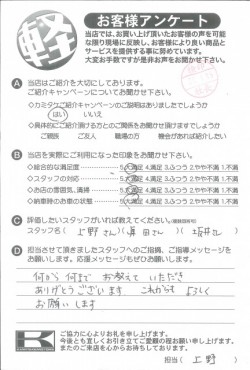 軽
お客様アンケート
当店では、お買い上げ頂いたお客様の声を可能
な限り現場に反映し、お客様により良い商品と
サービスを提供する事に努めています。
大変お手数ですが是非お声をお聞かせ下さい。
A 当店はご紹介を大切にしております。
ご紹介キャンペーンについてお聞かせ下さい
◇カミタケご紹介キャンペーンのご説明はありましたでしょうか
はい いいえ
◇具体的にご紹介頂ける方としてのご関係をお聞かせ頂けますでしょうか
ご親族 ご友人 職場の方 機会があれば紹介したい
B 当店を実際にご利用になった印象をお聞かせ下さい。
◇総合的な満足度 5.大満足 4.満足 3.ふつう 2.やや不満 1.不満
◇スタッフの対応 5.大満足 4.満足 3.ふつう 2.やや不満 1.不満
◇お店の雰囲気、清掃 5.大満足 4.満足 3.ふつう 2.やや不満 1.不満
◇納車時のお車の状態 5.大満足 4.満足 3.ふつう 2.やや不満 1.不満
C 評価したいスタッフがいれば教えてください。(複数回答可)
スタッフ名( 上野さん 真田さん
D 担当させて頂きましたスタッフへのご指摘、ご指導メッセージを
お願いします。応援メッセージもぜひお願いします。
何から何まで お教えて いただき
ありがとうございます これからも よろしく
お願いします
K
ご協力に心よりお礼を申し上げます。
今後とも宜しくお引き立てご愛顧の程お願い申し上げます。
またのご来店を心からお待ちしております。
担当( 上野 )